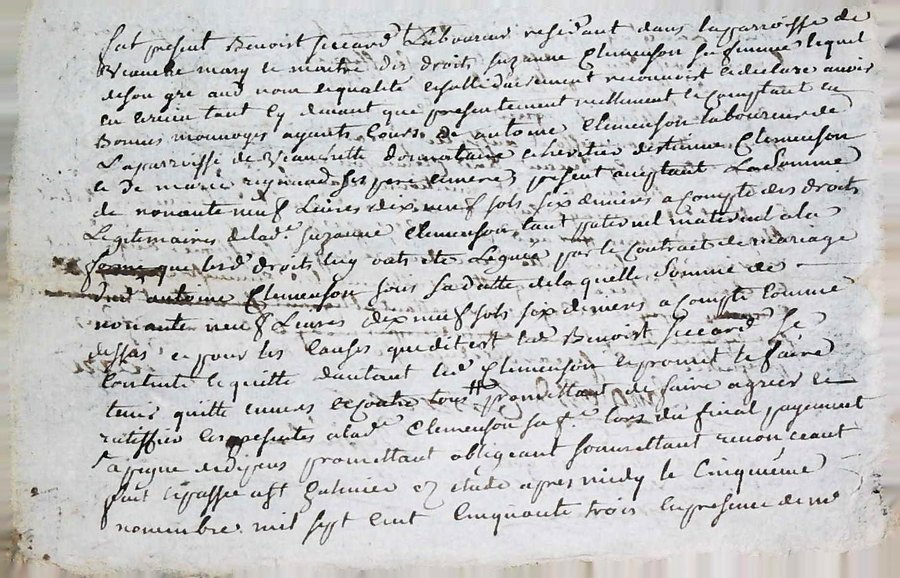 fut present Benoist Siccard Laboureur residant dans la parroisse de
mary le maitre des droits suzanne Clemenson sa femme lequel
de son gré aud nom et qualité et sollidairement reconnoit et declare avoir
eu et reçu tant cy devant que presentement reellement et comptant en
Bonnes monnoyes ayants Cours de antoine Clemenson laboureur de
La parroisse de donnataire et heritier d'estienne Clemenson
et de marie ses pere et mere present acceptant La somme
de nonante neuf Livres dix neuf sols six deniers a compte des droits
Legitimaires de lad.e suzanne Clemenson tant paternel maternel a la
que lesd droits luy ont été Legués par le Contract de mariage
dud antoine Clemenson sous sa datte de laquelle somme de
nonante neuf Livres dix neuf sols six deniers a compte comme
dessus et pour les Causes que dit est led Benoist Siccard se
Contente et quitte d'autant led Clemenson et promet le faire
tenir quitte envers et contre tous promettant de faire agréer et
ratiffier les presentes a lad.e Clemenson sa f.e lors du final payement
a peine de depens promettant obligeant soumettant renonceant
fait et passé a St Galmier ez étude apres midy le Cinquieme
novembre mil sept cent Cinquante trois en presence de m.e